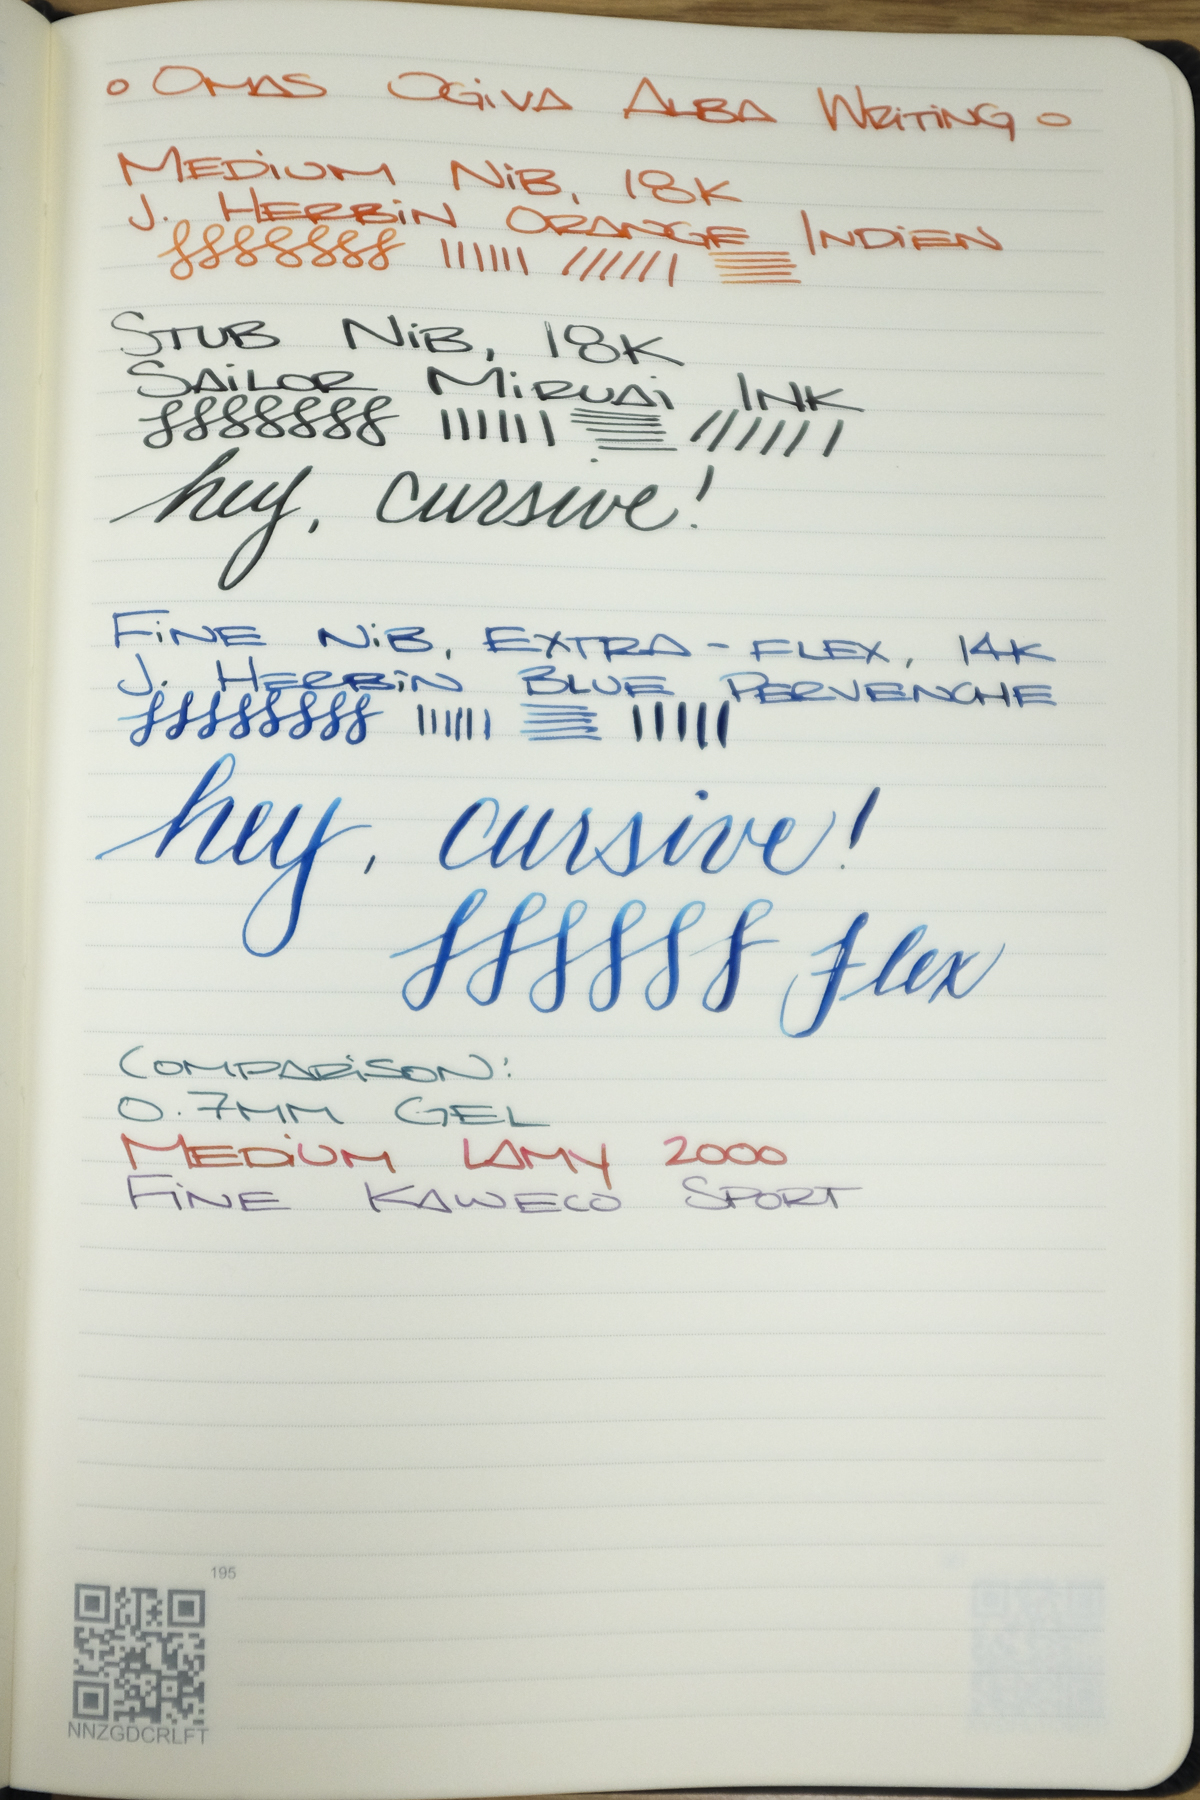 o OMAS OGiVA ALBA WRiTiNG o
MEDiUM NiB, 18K
J. HERBiN ORANGE INDiEN
STUB NiB, 18K
SAiLOR MiRUAi INK
hey, cursive!
FiNE NiB, EXTRA-FLEX, 14K
J. HERBiN BLUE PERVENCHE
hey, cursive!
flex
COMPARiSON:
0.7MM GEL
MEDiUM LAMY 2000
FiNE KAWECO SPORT
195
NNZGDCRLFT